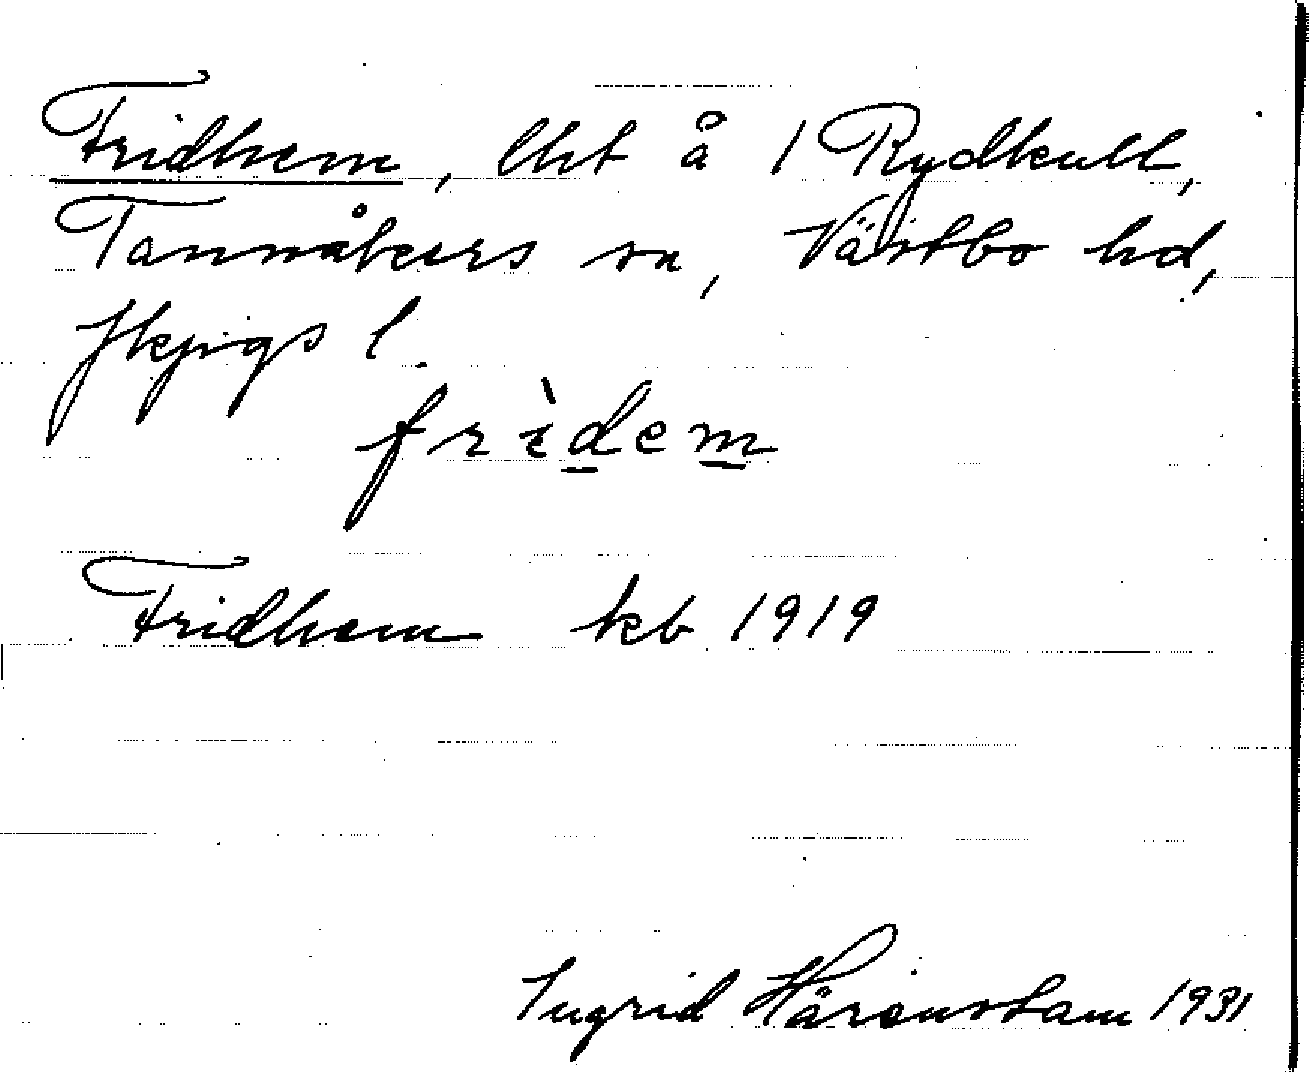 Fridhem, lht å 1 Rydkull,
Tannåkers sn, Västbo hd,
Jkpgs l.
frìdem
Fridhem kb 1919
Ingrid Härenstam 1931